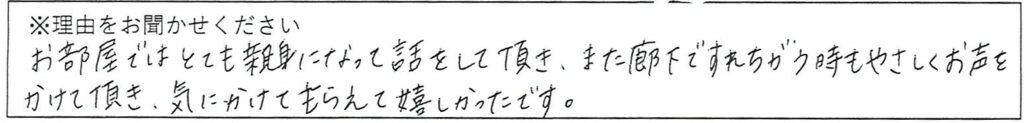 ※理由をお聞かせください
お部屋ではとても親身になって話をして頂き、また廊下ですれちがう時もやさしくお声を
かけて頂き、気にかけてもらえて嬉しかったです。